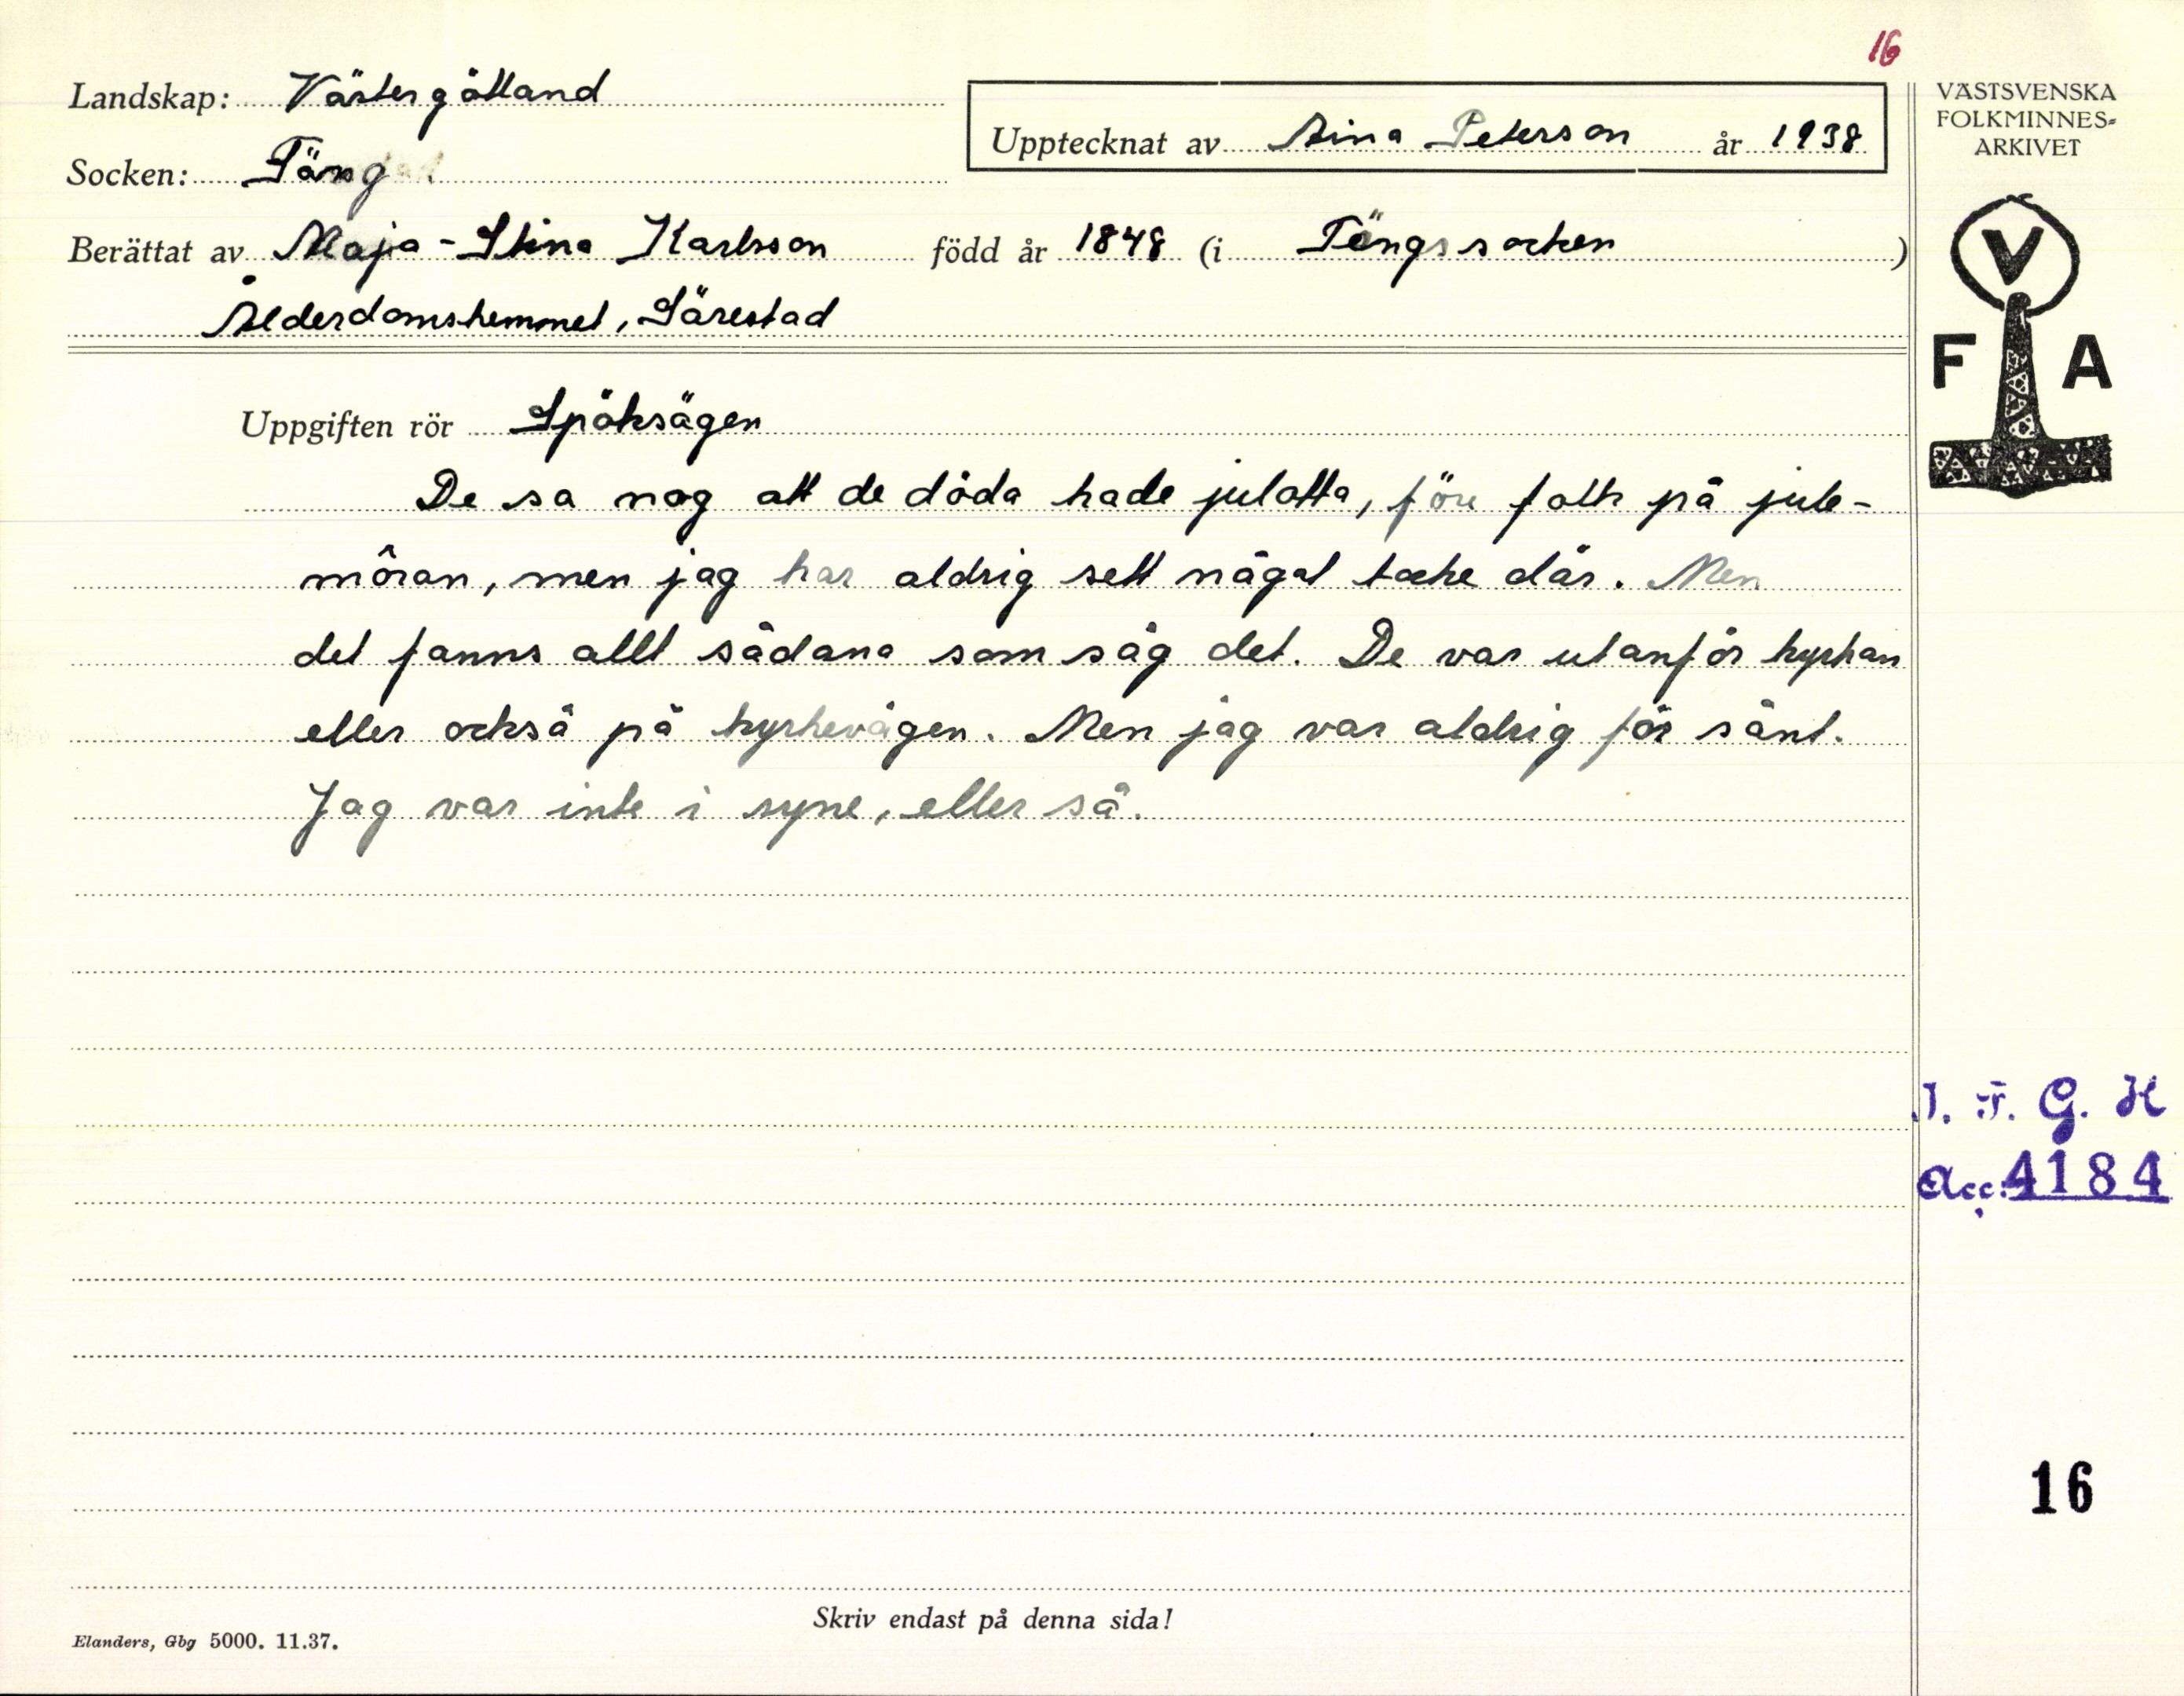 16
Landskap: Västergötland
Upptecknat av Aina Peterson år 1938
VÄSTSVENSKA
FOLKMINNES-
ARKIVET
Socken: Täng
Berättat av Maja-Stina Karlsson född år 1848 (i Tängs socken)
Ålderdomshemmet, Särestad
V
F A
Uppgiften rör Spöksägen
De sa nog att de döda hade julotta, före folk på jule-
môran, men jag har aldrig sett någat tocke där. Men
det fanns allt sådana som såg det. De var utanför kyrkan
eller också på kyrkevägen. Men jag var aldrig för sånt.
Jag var inte i syne, eller så.
I. F. G. H
Acc: 4184
16
Skriv endast på denna sida!
Elanders, Gbg 5000. 11.37.